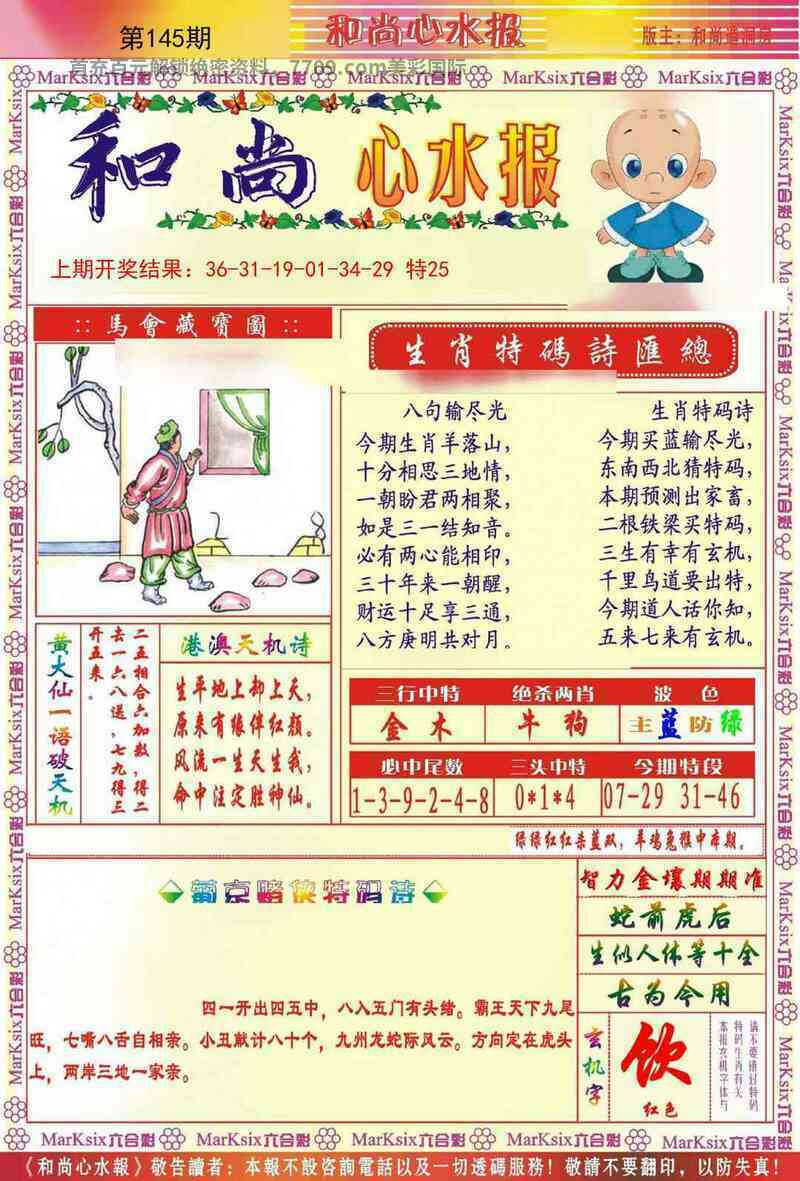 第145期
和尚心水报
版主：和尚道洞房
首充百元解锁绝密资料，7709.com美彩国际
MarKsix六合彩 MarKsix六合彩 MarKsix六合彩 MarKsix六合彩 MarKsix六合彩
和尚心水报
上期开奖结果：36-31-19-01-34-29 特25
::馬會藏寶圖::
生肖特碼詩匯總
八句输尽光
今期生肖羊落山，
十分相思三地情，
一朝盼君两相聚，
如是三一结知音。
必有两心能相印，
三十年来一朝醒，
财运十足享三通，
八方庚明共对月。
生肖特码诗
今期买蓝输尽光，
东南西北猜特码，
本期预测出家畜，
二根铁梁买特码，
三生有幸有玄机，
千里鸟道要出特，
今期道人话你知，
五来七来有玄机。
黄大仙一语破天机
二五相合六加数，得二
去一六八送，七九得三
开五来。
港澳天机诗
生平地上却上天，
原来有缘伴红颜。
风流一生天生我，
命中注定胜神仙。
三行中特
绝杀两肖
波 色
金 木
牛 狗
主蓝防绿
必中尾数
三头中特
今期特段
1-3-9-2-4-8
0*1*4
07-29 31-46
绿绿红红杀蓝双，羊鸡兔猴中本期。
葡京赌侠特码诗
四一开出四五中，八入五门有头绪。霸王天下九尾
旺，七嘴八舌自相亲。小丑献计八十个，九州龙蛇际风云。方向定在虎头
上，两岸三地一家亲。
智力金壤期期准
蛇前虎后
生似人体等十全
古为今用
玄机字
饮
红色
请不要错过特码
特码生肖有关
本报玄机字体与
MarKsix六合彩 MarKsix六合彩 MarKsix六合彩 MarKsix六合彩 MarKsix六合彩
《和尚心水報》敬告讀者：本報不設咨詢電話以及一切透碼服務！敬請不要翻印，以防失真！